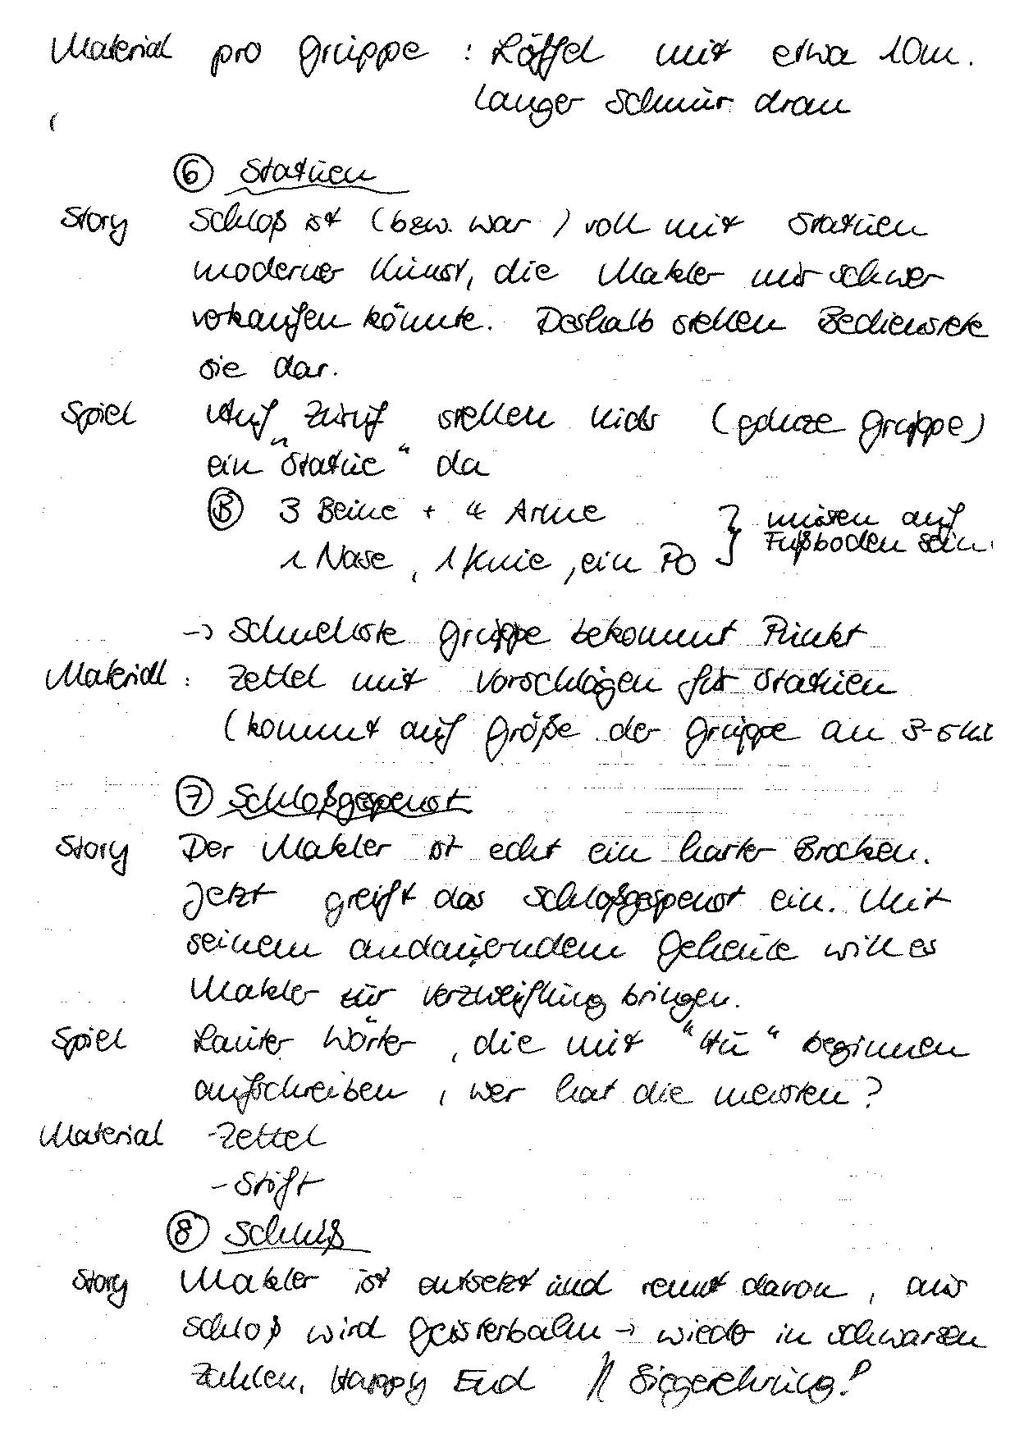 Material pro Gruppe : Löffel mit etwa 10m.
langer Schnur dran
⑥ Statuen
Story Schloß ist (bzw. war) voll mit Statuen
moderner Kunst, die Makler nur schwer
verkaufen könnte. Deshalb stellen Bedienstete
sie dar.
Spiel Auf Zuruf stellen Kids (ganze Gruppe)
ein "Statue" da
Ⓑ 3 Beine + 4 Arme } müssen auf
1 Nase, 1 Knie, ein Po } Fußboden sein.
-> Schnellste Gruppe bekommt Punkt
Material : Zettel mit Vorschlägen für Statuen
(kommt auf Größe der Gruppe an 3-5
⑦ Schloßgespenst
Story Der Makler ist echt ein harter Brocken.
Jetzt greift das Schloßgespenst ein. Mit
seinem andauerndem Geheule will es
Makler zur Verzweiflung bringen.
Spiel Lauter Wörter, die mit "Hu" beginnen
aufschreiben, wer hat die meisten?
Material -Zettel
-Stift
⑧ Schluß
Story Makler ist entsetzt und rennt davon, aus
Schloß wird Geisterbahn -> wieder in schwarzen
Zahlen, Happy End // Siegerehrung!